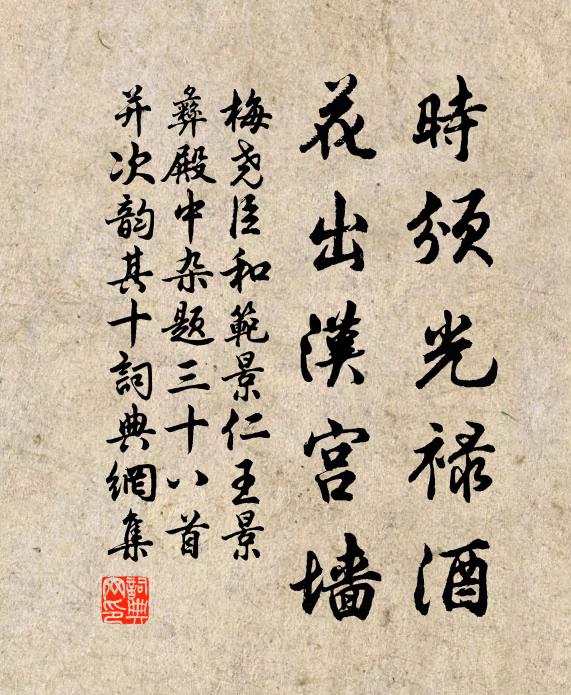 時頒光禄酒
花出漢宫墙
梅尧臣和範景仁王景
彝殿中杂题三十八首
并次韵其十詞典網集
詞典网印